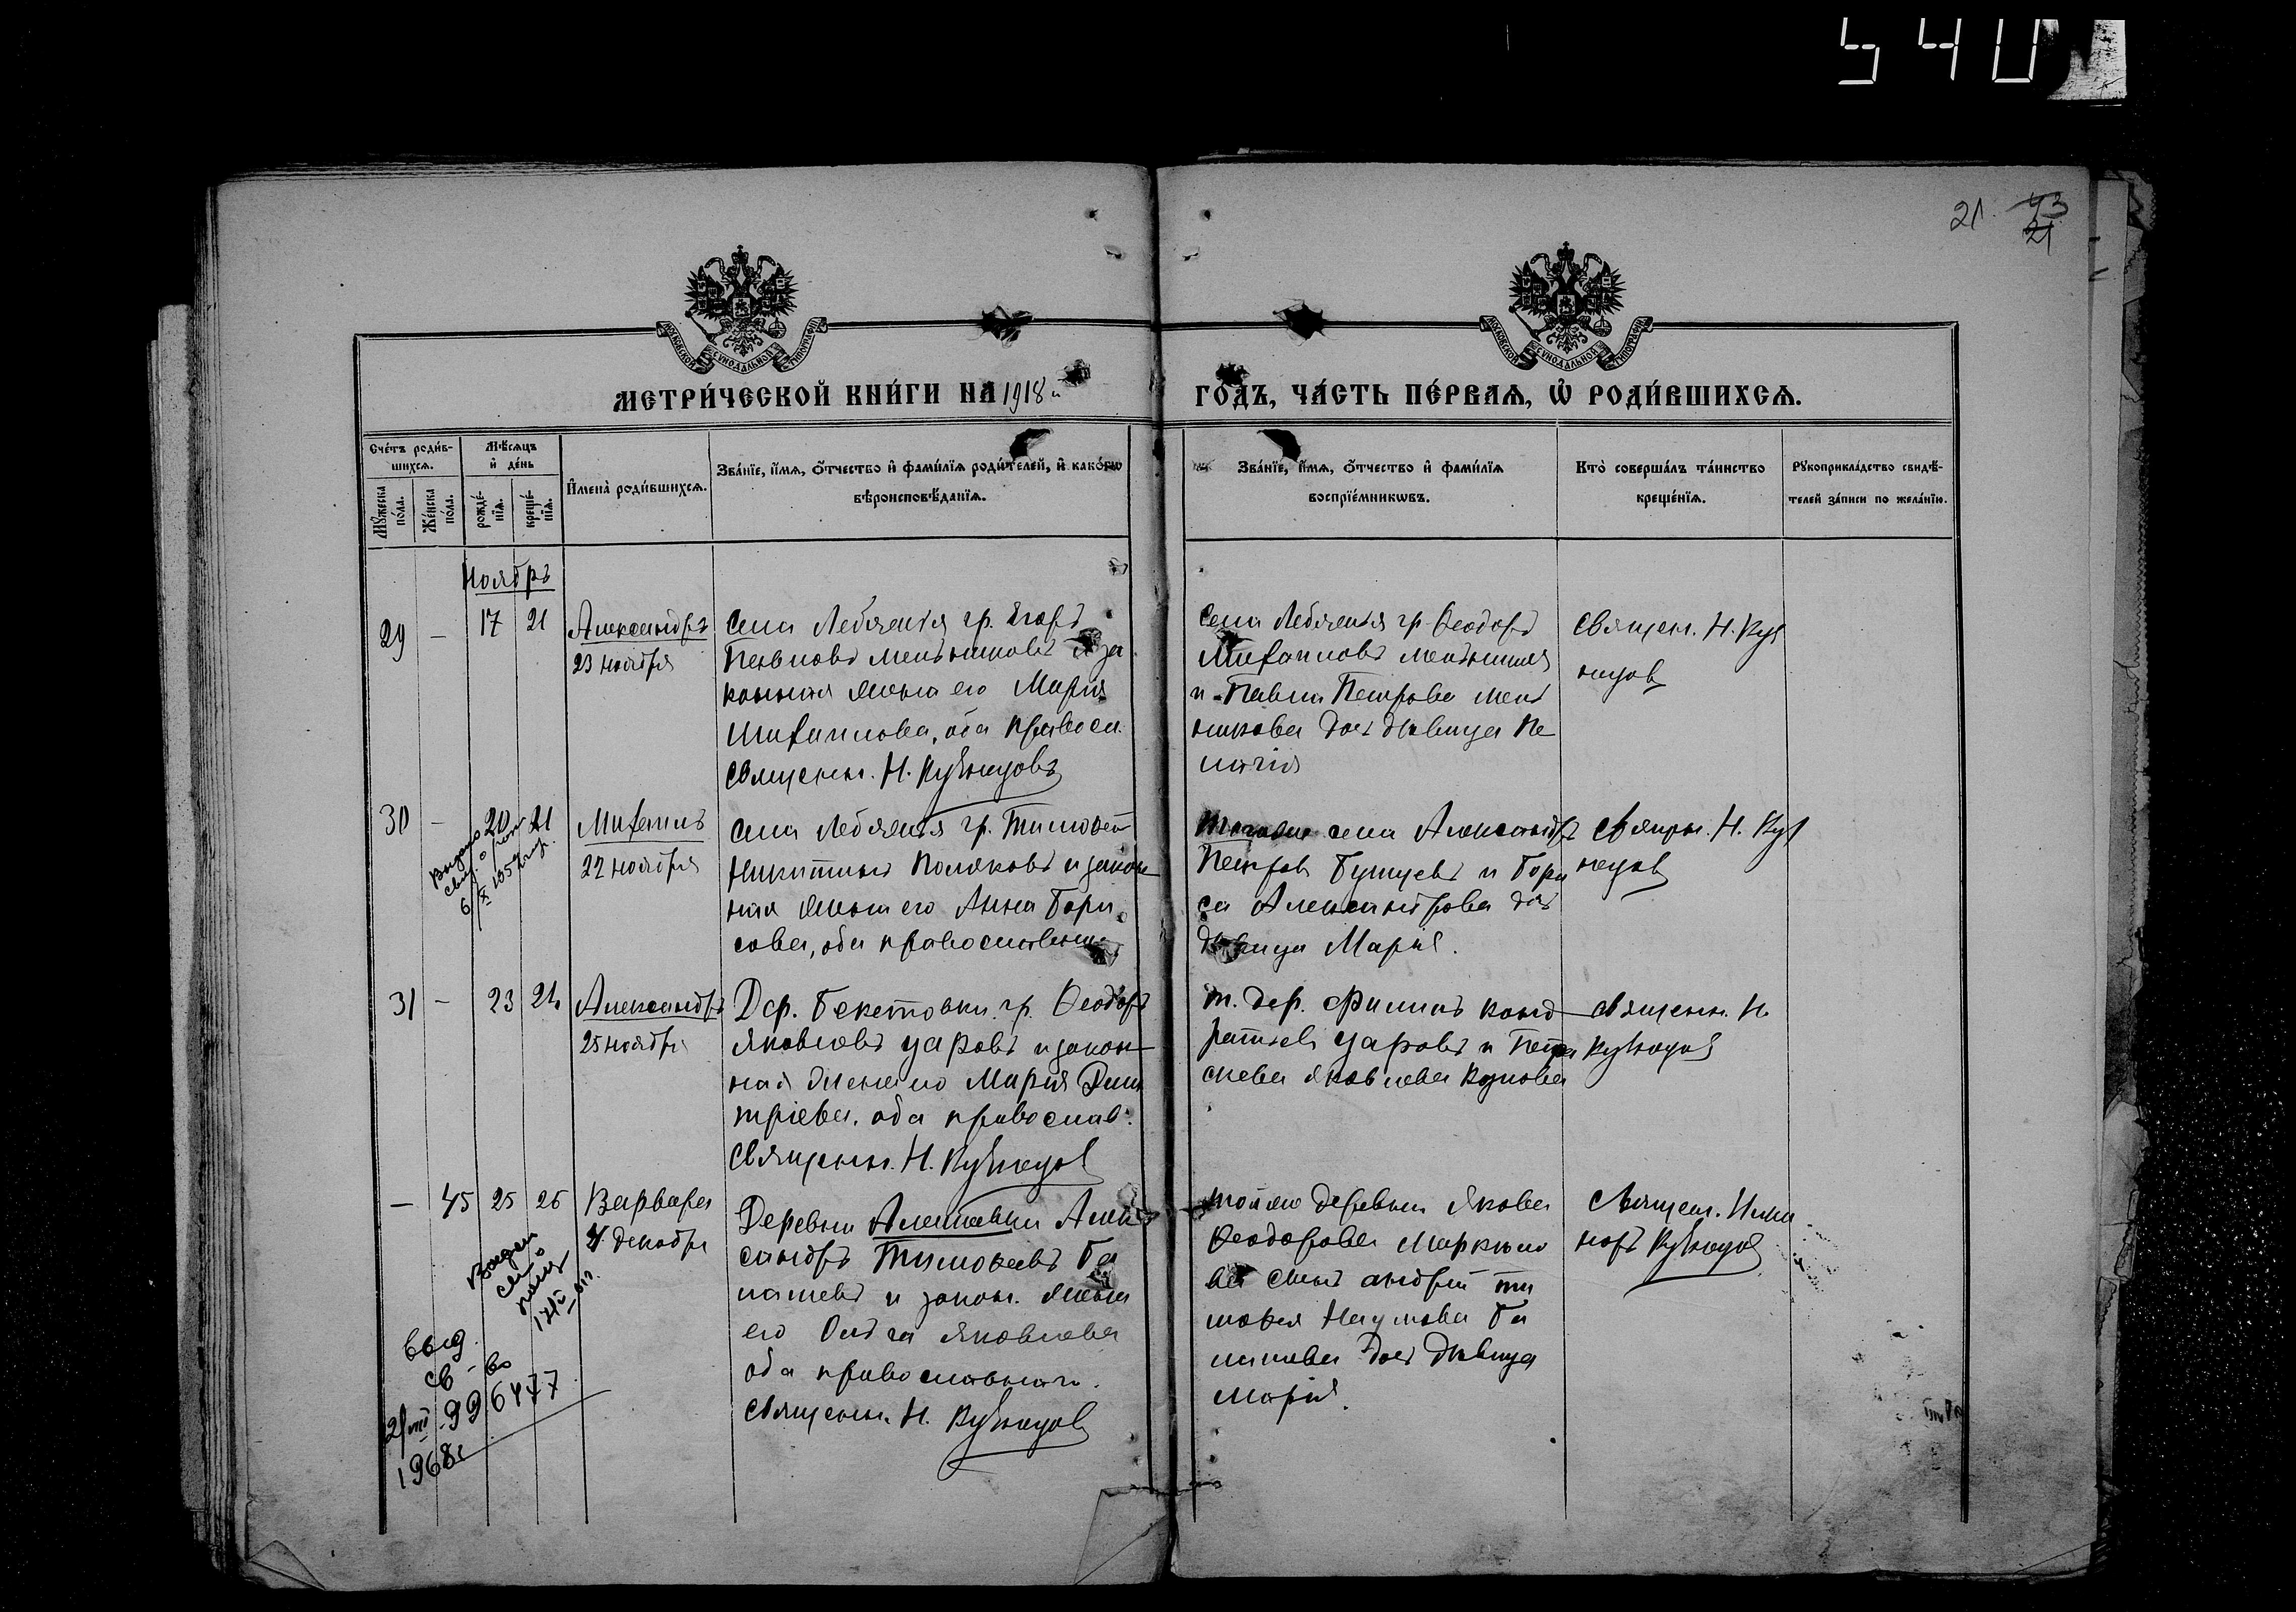 540
21. 43
21
МОСКОВСКОЙ СѴНОДАЛЬНОЙ ТИПОГРАФІИ
МОСКОВСКОЙ СѴНОДАЛЬНОЙ ТИПОГРАФІИ
МЕТРИ́ЧЕСКОЙ КНИ́ГИ НА 1918 й
ГО́ДЪ, ЧА́СТЬ ПЕ́РВАѦ, Ѽ РОДИ́ВШИХСѦ.
Сче́тъ роди́в-
шихсѧ.
Мꙋ́жеска по́ла.
Же́нска по́ла.
Мѣ́сѧцъ
и҆ де́нь
рожде́-нїѧ.
креще́-нїѧ.
И҆мена̀ роди́вшихсѧ.
Зва́нїе, и҆́мѧ, ѻ҆́тчество и҆ фами́лїѧ роди́телей, и҆ како́гѡ
вѣроисповѣ́данїѧ.
Зва́нїе, и҆́мѧ, ѻ҆́тчество и҆ фами́лїѧ
воспрїе́мникѡвъ.
Кто̀ соверша́лъ та́инство
креще́нїѧ.
Рꙋкоприкла́дство свидѣ́-
телей за́писи по жела́нїю.
Ноябрь
29 – 17 21 Александръ
23 ноября
Села Лебяжья гр. Егоръ
Павловъ Меньшиковъ и за
конная жена его Мария
Михаилова, оба правосл.
Священн. Н. Кузнецовъ
Села Лебяжья гр. Ѳеодоръ
Михаиловъ
и Павла Петрова Мень
шикова дочь дѣвица Пе
лагія
Священ. Н. Куз
нецов
30 – 20 21 Михаилъ
22 ноября
Выдано
Села Лебяжья гр. Тимоѳей
Никитинъ Поляковъ и закон
ная жена его Анна Бори
сова, оба православны
села Александръ
Петровъ и Бори
са Александрова дочь
дѣвица Марія.
Н. Куз
нецов
31 – 23 24 Александръ
25 ноября
Дер. Бекетовки гр. Ѳеодоръ
Яковлевъ Царовъ и закон
ная жена его Мария Дми
тріева, оба православ.
Священн. Н. Кузнецов
т. дер. Филипъ Конд
ратьевъ Царовъ и
Яковлева
Священн. Н.
Кузнецов
– 45 25 26 Варвара
4 декабря
Деревни Александръ Тимоѳеевъ Ба
лашевъ и закон. жена
его Ольга Яковлева
оба православные.
Священн. Н. Кузнецов
той же деревни Якова
Ѳеодорова
сынъ Андрей Ти
моѳея Наумова Ба
лашева дочь дѣвица
Марія.
Священ. Ника
норъ Кузнецов
выд.
св-во
996477
1968г